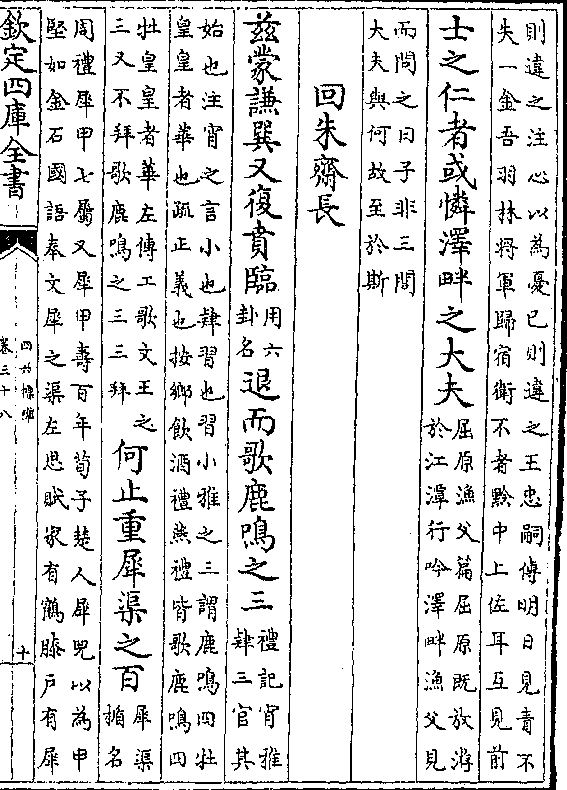 則違之注心以為憂已則違之王忠嗣傳明日見責不
失一金吾羽林將軍歸宿衛不者黔中上佐耳互見前
士之仁者或憐澤畔之大夫
屈原漁父篇屈原既放游
於江潭行吟澤畔漁父見
而問之曰子非三閭
大夫與何故至於斯
回朱齋長
茲蒙謙巽又復賁臨
用六
卦名
退而歌鹿鳴之三
禮記宵雅
肄三官其
始也注宵之言小也肄習也習小雅之三謂鹿鳴四牡
皇皇者華也疏正義也按鄉飲酒禮燕禮皆歌鹿鳴四
牡皇皇者華左傳工歌文王之
三又不拜歌鹿鳴之三三拜
何止重犀渠之百
犀渠
楯名
周禮犀甲七屬又犀甲壽百年荀子楚人犀兕以為甲
堅如金石國語奉文犀之渠左思賦家有鶴膝戶有犀
欽定四庫全書
四六標準
卷三十八
十